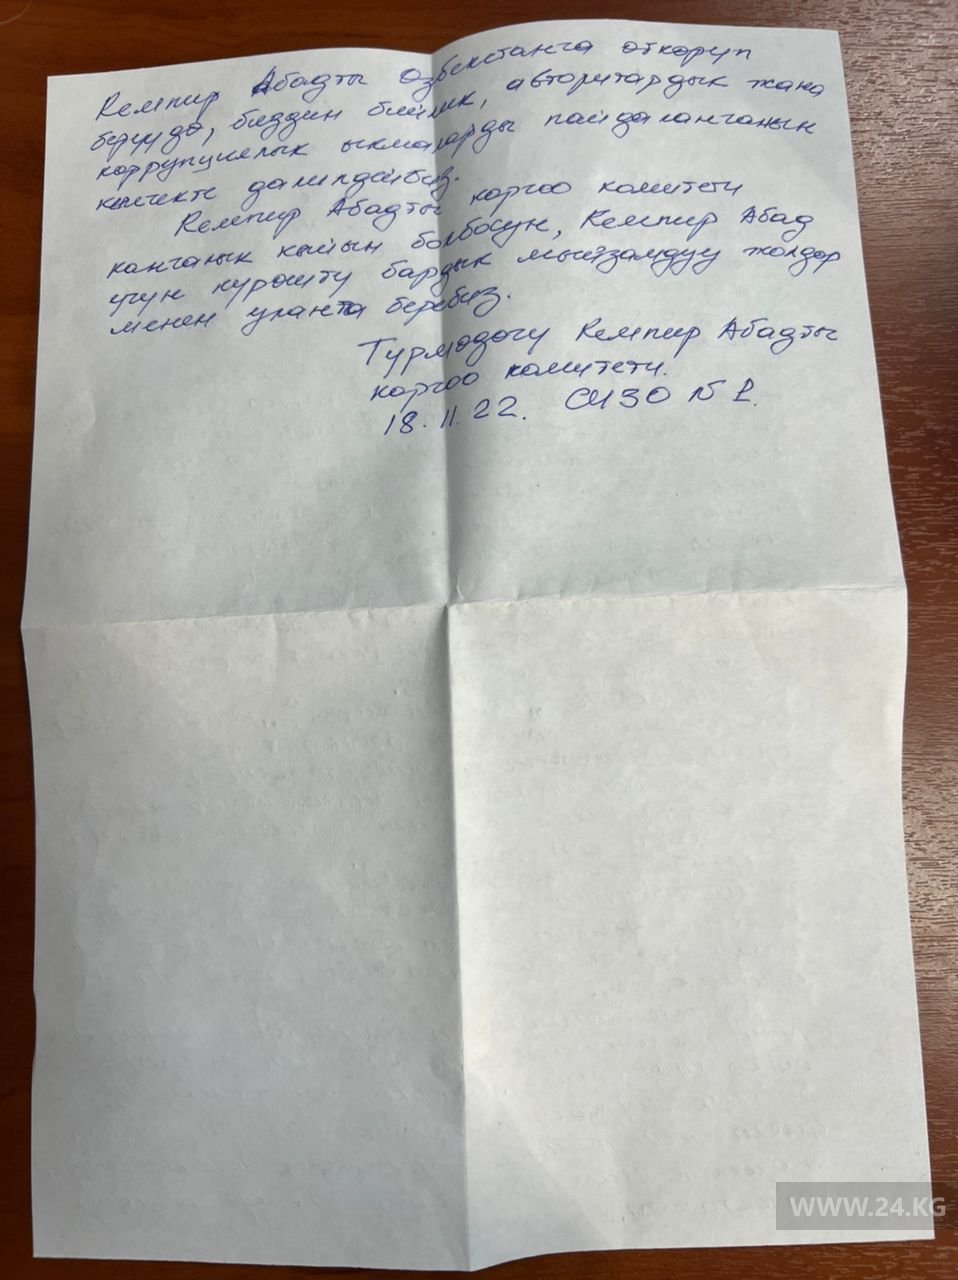 Кемпир Абадты Озбекстанга откоруп
берууда, биздин бийлик, авторитардык жана
коррупциялык ыкмаларды пайдаланганын
кылчекте далилдейбиз.
Кемпир Абадты коргоо комитети
канчалык кыйын болбосун, Кемпир Абад
учун курошту бардык мыйзамдуу жолдор
менен уланта беребиз.
Турмодогу Кемпир Абадты
коргоо комитети.
18.11.22. СИЗО №1.
WWW.24.KG